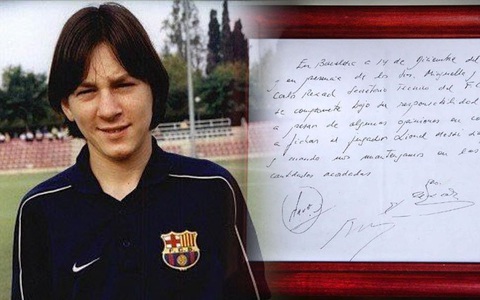 En Barcelona a 14 de diciembre del
en presencia de los Sres. Minguella y
Carlos Rexach Secretario Técnico del F.C.
se compromete bajo su responsabilidad
a pesar de algunas opiniones en co
a fichar al jugador Lionel Messi
y cuando nos mantengamos en las
cantidades acordadas
F C B